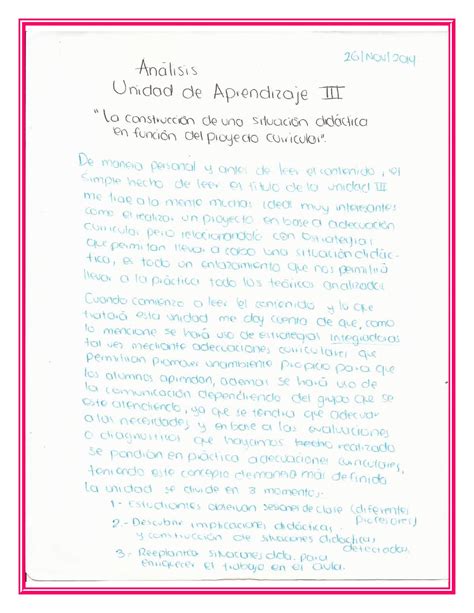 26/Nov/2014
Análisis
Unidad de Aprendizaje III
"La construcción de una situación didáctica
en función del proyecto curricular".
De manera personal y antes de leer el contenido, el
simple hecho de leer el titulo de la unidad III
me trae a la mente muchas ideas muy interesantes
como el realizar un proyecto en base a adecuación
curricular pero relacionandolo con estrategias
que permitan llevar a cabo una situación didác-
tica, es todo un entrelazamiento que nos permitirá
llevar a la práctica todo los teóricos analizados.
Cuando comienzo a leer el contenido y lo que
tratará esta unidad me doy cuenta de que, como
lo mencione se hará uso de estrategias integradoras
tal ves mediante adecuaciones curriculares que
permitiran promover un ambiente propicio para que
los alumnos aprendan, ademas se hará uso de
la comunicación dependiendo del grupo que se
este atendiendo, ya que se tendra que adecuar
a las necesidades y en base a las evaluaciones
o diagnosticos que hayamos hecho realizado
se pondrán en práctica adecuaciones curriculares,
teniendo este concepto de manera más definida
la unidad se divide en 3 momentos:
1.- Estudiantes observan sesiones de clase (diferentes
profesores)
2.- Descubrir implicaciones didácticas
y construcción de situaciones didácticas
detectadas.
3.- Replantear situaciones dida. para
enriquecer el trabajo en el aula.